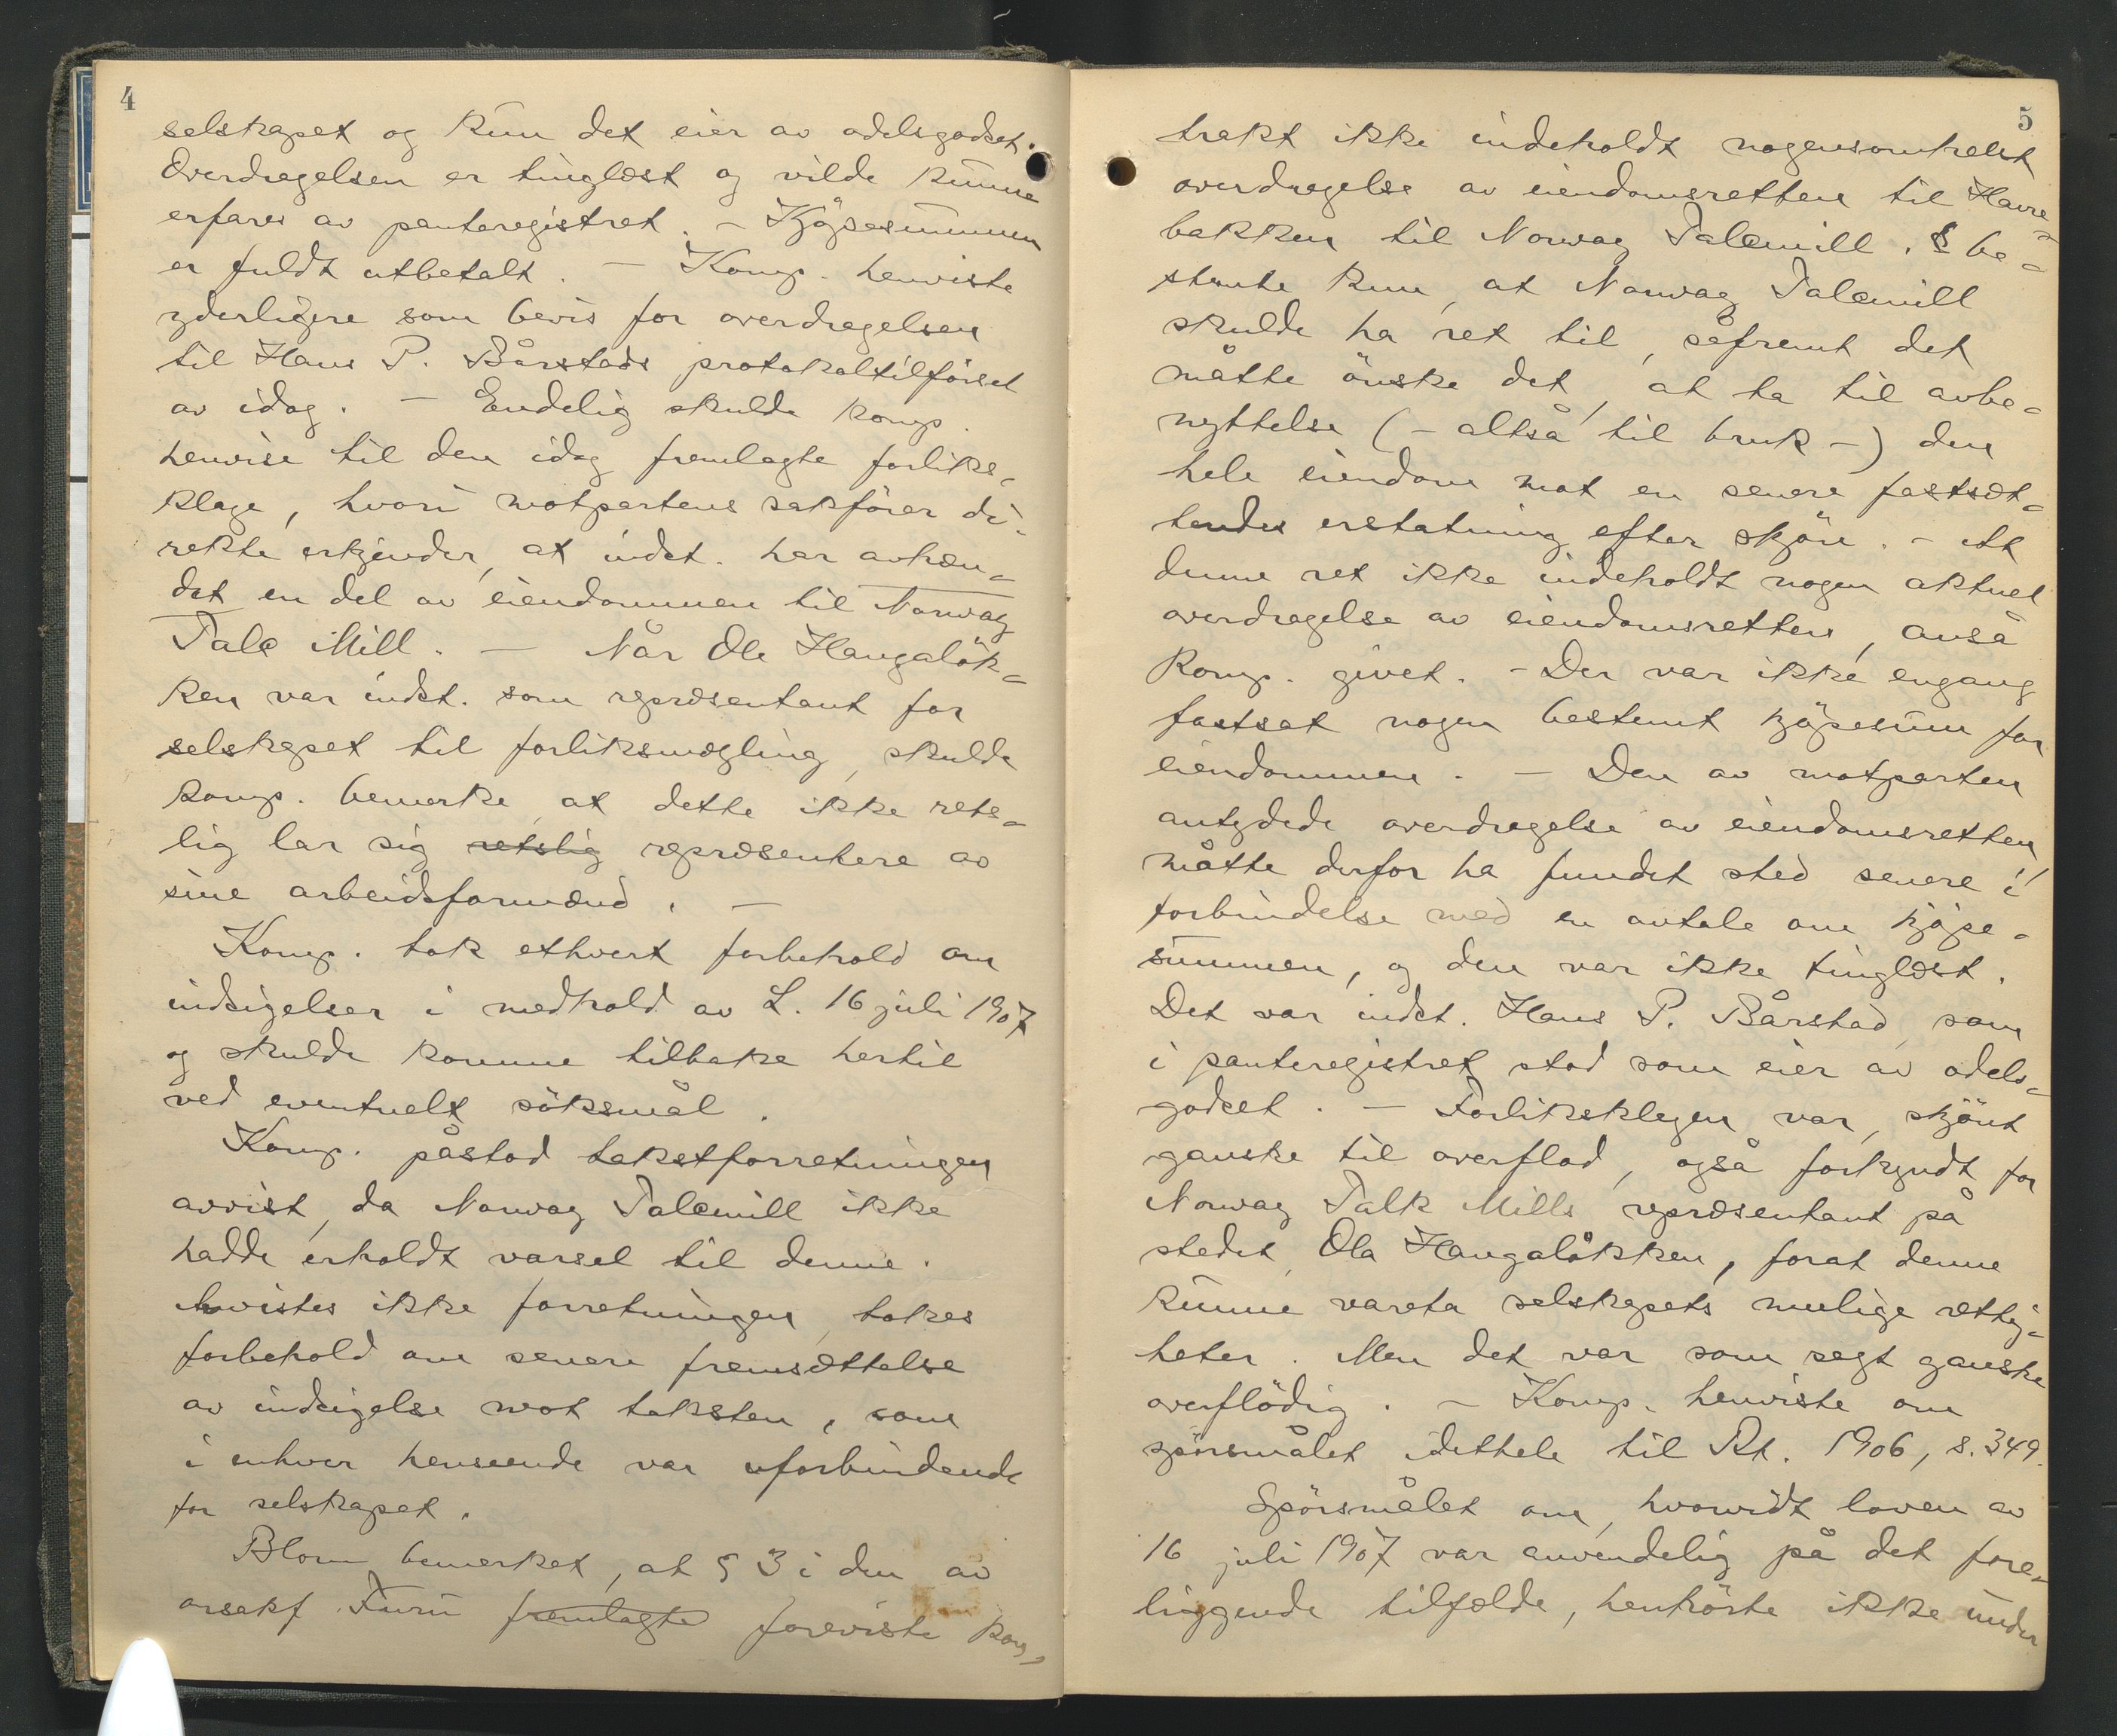 4
selskapet og kun det eier av odelsgodset.
Overdragelsen er tinglæst og vilde kunne
erfares av panteregistret. – Kjöpesummen
er fuldt utbetalt. – Komp. henviste
yderligere som bevis for overdragelsen
til Hans P. Bårstads protokoltilförsel
av idag. – Endelig skulde komp.
henvise til den idag fremlagte forliks-
klage, hvori motpartens sakförer di-
rekte erkjender, at indst. har avhæn-
det en del av eiendommen til Norway
Talc Mill. – Når Ole Haugalök-
ken var indst. som repræsentant for
selskapet til forliksmægling, skulde
komp. bemerke, at dette ikke rets-
lig lar sig retslig repræsentere av
sine arbeidsformænd. –
Komp. tok ethvert forbehold om
indsigelser i medhold av L. 16 juli 1907
og skulde komme tilbake hertil
ved eventuelt söksmål.
Komp. påstod takstforretningen
avvist, da Norway Talcmill ikke
hadde erholdt varsel til denne.
Avvistes ikke forretningen, tokes
forbehold om senere fremsættelse
av indsigelse mot taksten, som
i enhver henseende var uforbindende
for selskapet.
Blom bemerket, at § 3 i den av
orsakf. Furu fremlagte foreviste kon-
5
trakt ikke indeholdt nogensomhelst
overdragelse av eiendomsretten til Havre-
bakken til Norway Talcmill. § be-
stemte kun, at Norway Talcmill
skulde ha ret til, såfremt det
måtte önske det, at ta til avbe-
nyttelse (– altså til bruk –) den
hele eiendom mot en senere fastsæt-
tendes erstatning efter skjön. – At
denne ret ikke indeholdt nogen aktuel
overdragelse av eiendomsretten, anså
komp. givet. – Der var ikke engang
fastsat nogen bestemt kjöpesum for
eiendommen. – Den av motparten
antydede overdragelse av eiendomsretten
måtte derfor ha fundet sted senere i
forbindelse med en avtale om kjöpe-
summen, og den var ikke tinglæst.
Det var indst. Hans P. Bårstad, som
i panteregistret stod som eier av odels-
godset. – Forliksklagen var, skjönt
ganske til overflod, også forkyndt for
Norway Talk Mills repræsentant på
stedet, Ola Haugalökken, forat denne
kunne vareta selskapets mulige rettig-
heter. Men det var som sagt ganske
overflödig. – Komp. henviste om
spörsmålet idethele til Rt. 1906, s. 349.
Spörsmålet om, hvorvidt loven av
16 juli 1907 var anvendelig på det fore-
liggende tilfælde, henhörte ikke under